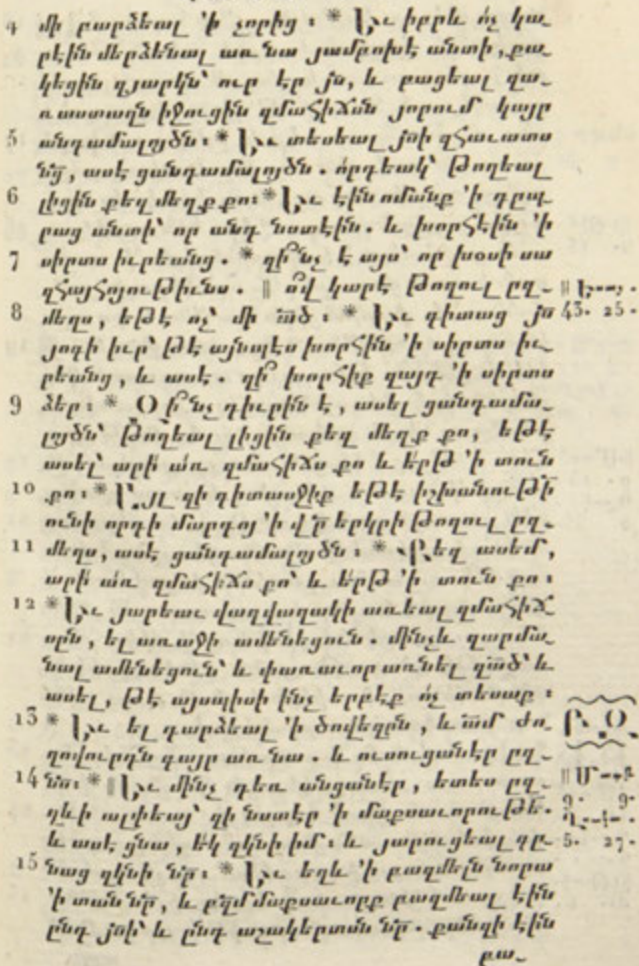 4 մի բարձեալ ՚ի չորից : * Եւ իբրև ոչ կա֊
րէին մերձենալ առ նա յամբոխէ անտի, քա֊
կեցին զյարկն՝ ուր էր յս, և բացեալ զա֊
ռաստաղն իջուցին զմահիճսն յորում կայր
5 անդամալոյծն : * Եւ տեսեալ յսի զհաւատս
նց, ասէ ցանդամալոյծն . որդեակ՝ թողեալ
6 լիցին քեզ մեղք քո : * Եւ էին ոմանք ՚ի դըպ֊
րաց անտի՝ որ անդ նստէին . և խորհէին ՚ի
7 սիրտս իւրեանց . * զի՞նչ է այս՝ որ խօսի սա
զհայհոյութիւնս . ‖ ո՞վ կարէ թողուլ ըզ֊
8 մեղս, եթէ ոչ՝ մի ած : * Եւ գիտաց յս
‖ Եսայ .
43. 25 .
յոգի իւր՝ թէ այնպէս խորհին ՚ի սիրտս իւ֊
րեանց, և ասէ . զի՞ խորհիք զայդ ՚ի սիրտս
9 ձեր : * Օ ի՞նչ դիւրին է, ասել ցանդամա֊
լոյծն՝ թողեալ լիցին քեզ մեղք քո, եթէ
ասել՝ արի առ զմահիճս քո և երթ ՚ի տուն
10 քո : * Բայց զի գիտասջիք եթէ իշխանութի
ունի որդի մարդոյ ՚ի վր երկրի թողուլ ըզ֊
11 մեղս, ասէ ցանդամալոյծն : * Քեզ ասեմ,
արի առ զմահիճս քո՝ և երթ ՚ի տուն քո :
12 * Եւ յարեաւ վաղվաղակի առեալ զմահիճ֊
սրն, ել առաջի ամենեցուն . մինչև զարմա֊
նալ ամենեցուն՝ և փառաւոր առնել զած՝ և
ասել, թէ այսպիսի ինչ երբէք ոչ տեսաք :
13 * Եւ ել դարձեալ ՚ի ծովեզրն, և ամ ժո֊
ղովուրդն գայր առ նա . և ուսուցանէր ըզ֊
14 նս : * ‖ Եւ մինչ դեռ անցանէր, ետես ըզ֊
ղևի ալփեայ՝ զի նստէր ՚ի մաքսաւորութե .
և ասէ ցնա, եկ զկնի իմ : և յարուցեալ գը֊
9. 9 .
5. 27 .
15 նաց զկնի նր : * Եւ եղև ՚ի բազմելն նորա
՚ի տան նր, և բզմ մաքսաւորք բազմեալ էին
ընդ յսի՝ և ընդ աշակերտսն նր . քանզի էին
բա֊